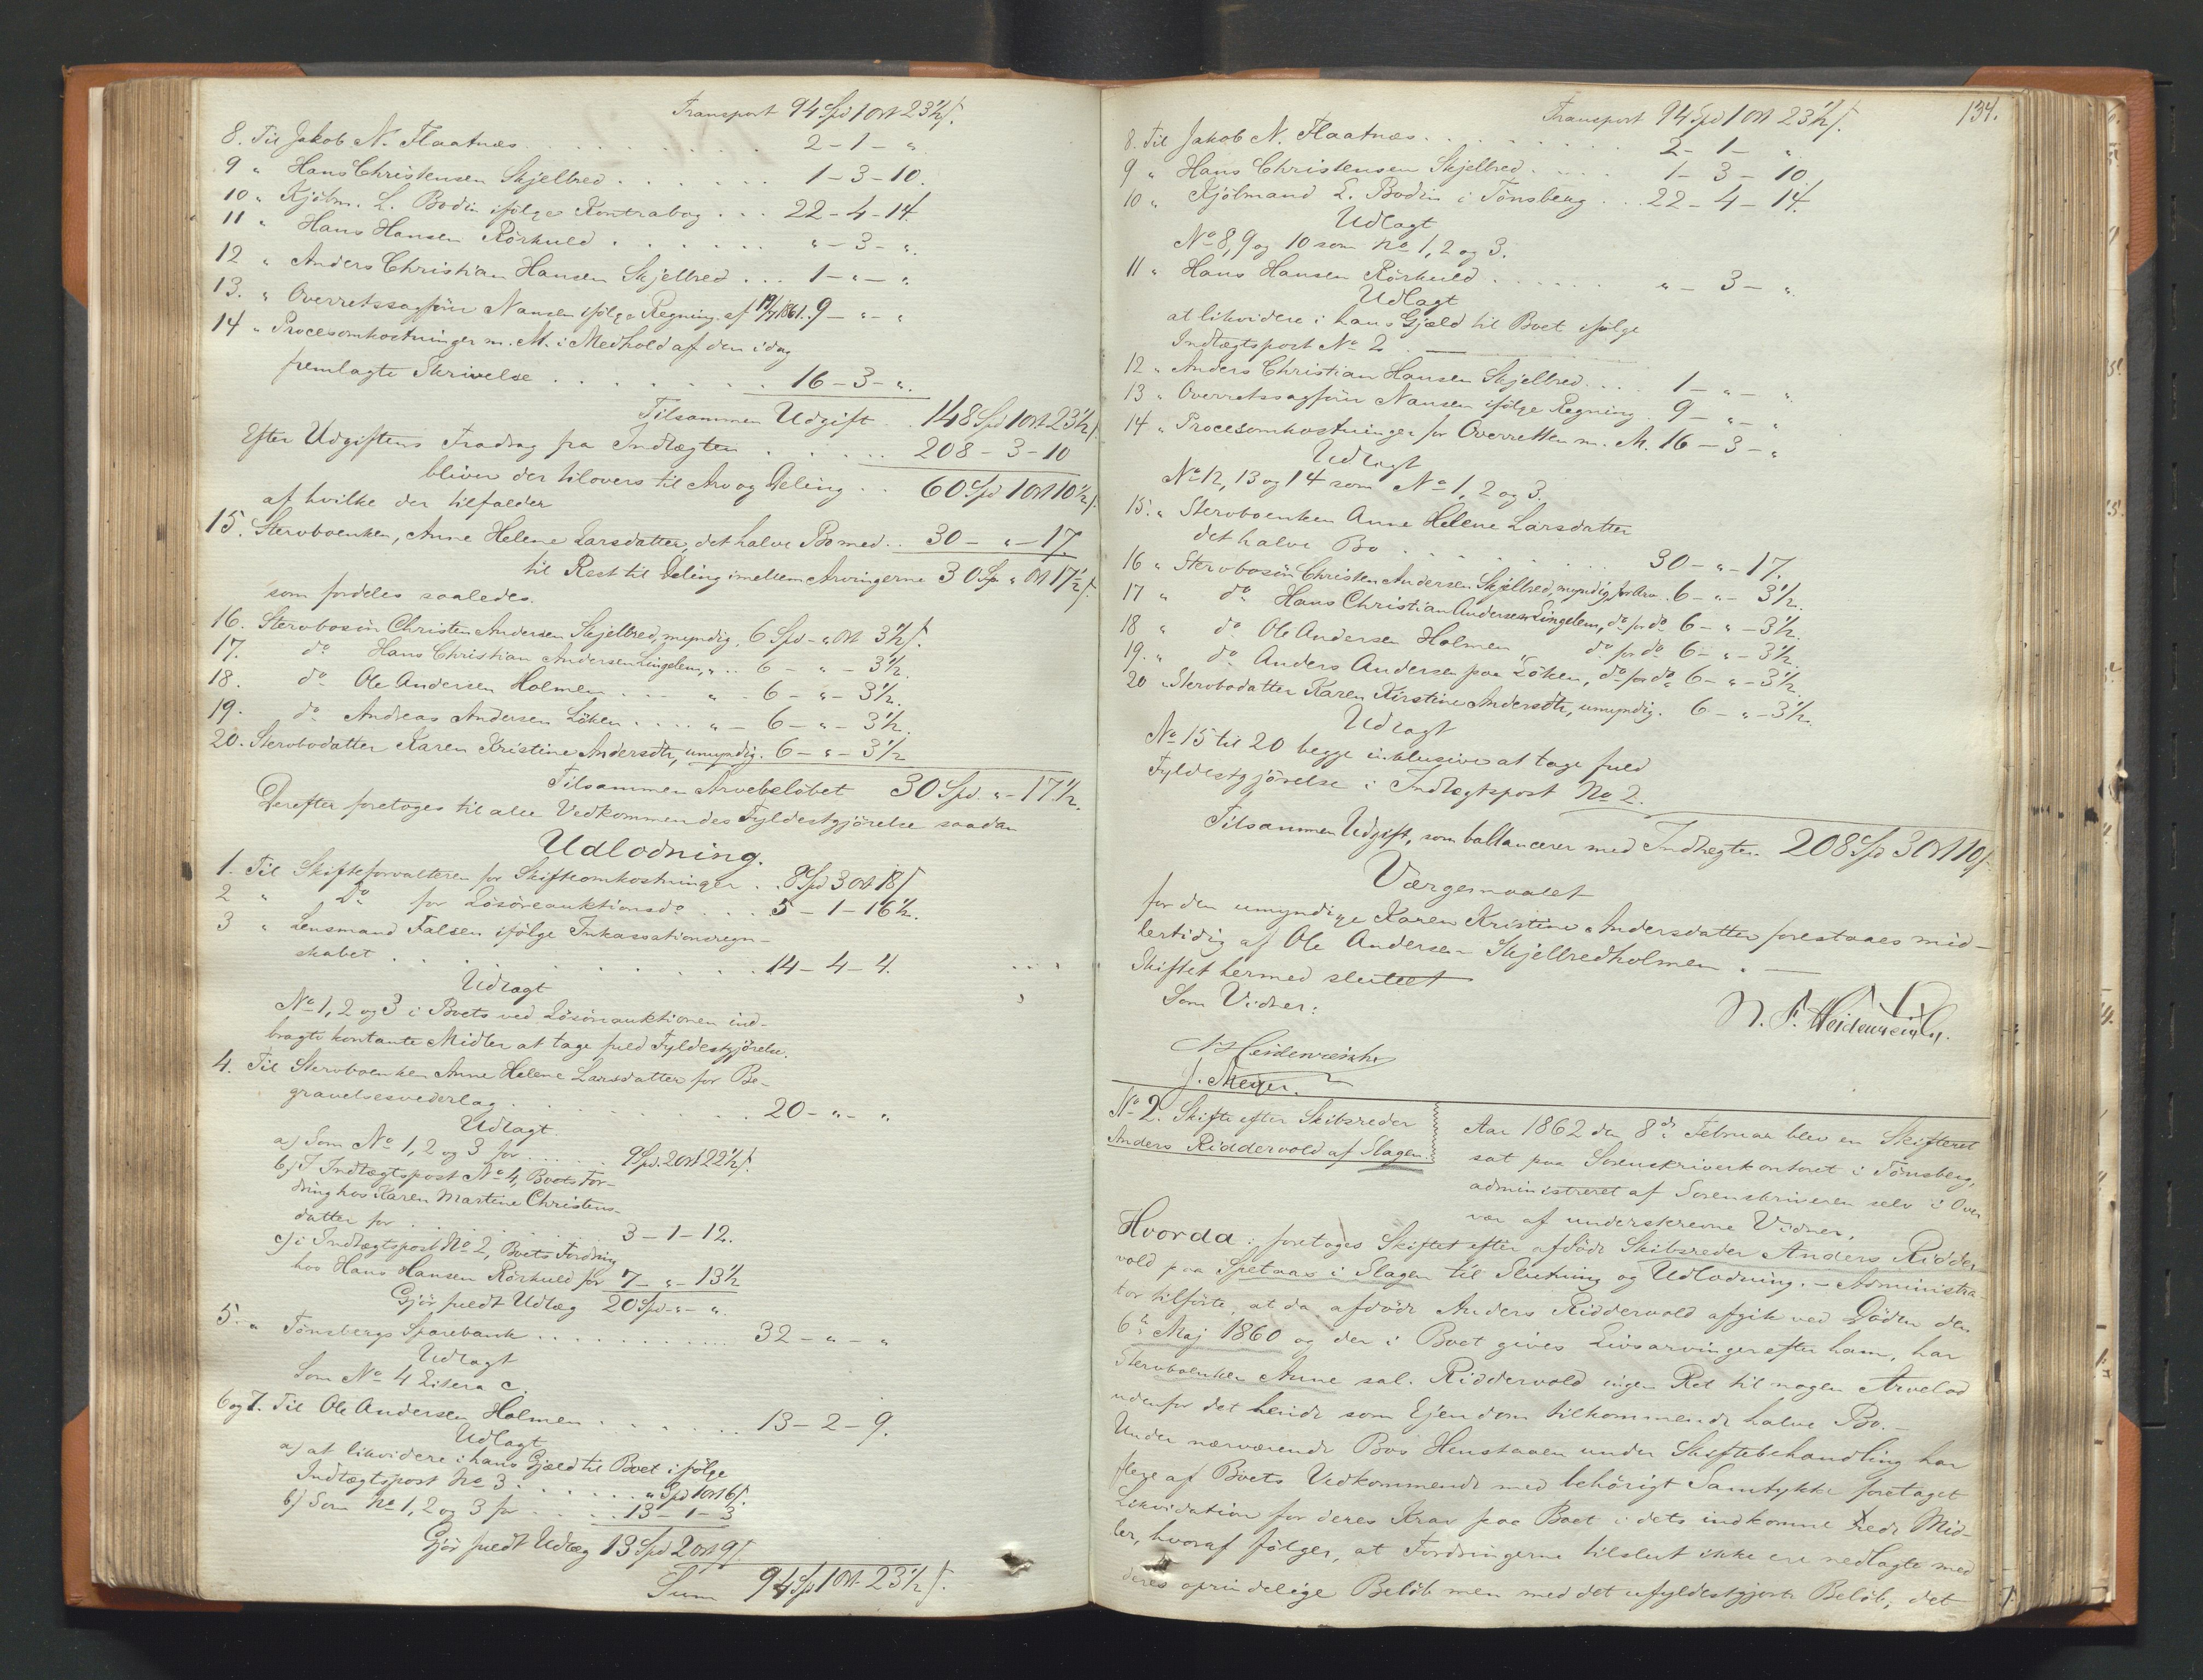 Transport 94 Spd 1 ort 23½ ſ.
8. Til Jakob N. Flaatnæs . . . 2 - 1 - "
9 " Hans Christensen Skjelbred . . . 1 - 3 - 10.
10 " Kjöbm. L. Bodin ifølge Kontrabog . . . 22 - 4 - 14.
11 " Hans Hansen Rörkuld . . . " - 3 - ".
12 " Anders Christian Hansen Skjelbred . . . 1 - " - "
13. " Overretssagfører Nansen ifølge Regning af 19/7 1861. 9 - " - "
14 " Procesomkostninger m. M. i Medhold af den idag
fremlagte Skrivelse . . . 16 - 3 - ".
Tilsammen Udgift . . 148 Spd 1 ort 23½ ſ.
Efter Udgiftens Fradrag fra Indtægten . . . 208 - 3 - 10
bliver der tilovers til Arv og Deling . . 60 Spd 1 ort 10½ ſ.
af hvilke der tilfalder
15. Stervboenken, Anne Helene Larsdatter, det halve Bo med . . 30 - " - 17
til Rest til Deling imellem Arvingerne 30 Sp " ort 17½ ſ.
som fordeles saaledes.
16. Stervbosön Christen Andersen Skjelbred, myndig, 6 Spd - " ort 3½ ſ.
17. do Hans Christian Andersen Lingelem, " . . 6 - " - 3½.
18. do Ole Andersen Holmen . . . " - 6 - " - 3½.
19. do Andreas Andersen Löken . . . " - 6 - " - 3½.
20. Stervbodatter Karen Kristine Andersdtr, umyndig. 6 - " - 3½
Tilsammen Arvebeløbet 30 Spd. " - 17½.
Derefter foretoges til alle Vedkommendes Fyldestgjörelse saadan
Udlodning.
1. Til Skifteforvalteren for Skifteomkostninger . . 8 Spd 3 ort 18 ſ
2 " do for Lösöreauktionsdo . . . 5 - 1 - 16½.
3 " Lensmand Falsen ifölge Inkassationsregn-
skabet . . . 14 - 4 - 4.
Udlagt
No 1, 2 og 3 i Boets ved Lösöreauktionen ind-
bragte kontante Midler at tage fuld Fyldestgjörelse.
4. Til Stervboenken Anne Helene Larsdatter for Be-
gravelsesvederlag . . . 20 - " - "
Udlagt.
a) Som No 1, 2 og 3 for . . . 9 Spd. 2 ort 22½ ſ.
b) I Indtægtspost No 4, Boets For-
dring hos Karen Martine Christens-
datter for . . . 3 - 1 - 12.
c) i Indtægtspost No 2, Boets Fordring
hos Hans Hansen Rörkuld for 7 - " - 13½
Gjör fuldt Udlæg 20 Spd - " - ".
5. " Tönsbergs Sparebank . . . 32 - " - "
Udlagt
Som No 4 Litera c.
6 og 7. Til Ole Andersen Holmen . . . 13 - 2 - 9.
Udlagt
a) at likvidere i hans Gjæld til Boet ifölge
Indtægtspost No 3 . . . " Spd 1 ort 6 ſ.
b) Som No 1, 2 og 3 for . . . 13 - 1 - 3
Gjör fuldt Udlæg 13 Spd 2 ort 9 ſ.
Sum 94 Sp 1 ort 23½ ſ.
134.
Transport 94 Spd 1 ort 23½ ſ.
8. Til Jakob N. Flaatnæs . . . 2 - 1 - "
9 " Hans Christensen Skjelbred . . . 1 - 3 - 10
10 " Kjöbmand L. Bodin i Tönsberg . . . 22 - 4 - 14.
Udlagt
No 8, 9 og 10 som No 1, 2 og 3.
11 " Hans Hansen Rörkuld . . . " - 3 - ".
Udlagt
at likvidere i hans Gjæld til Boet ifölge
Indtægtspost No 2. —
12 " Anders Christian Hansen Skjelbred . . . 1 - " - "
13 " Overretssagförer Nansen ifölge Regning 9 - " - "
14 " Procesomkostninger for Overretten m. M. 16 - 3 - "
Udlagt
No 12, 13 og 14 som No 1, 2 og 3.
15. " Stervboenken Anne Helene Larsdatter
det halve Bo . . . 30 - " - 17.
16 " Stervbosön Christen Andersen Skjelbred, myndig, for Arv. 6 - " - 3½.
17 " do Hans Christian Andersen Lingelem, do for do 6 - " - 3½.
18 " do Ole Andersen Holmen, do for do 6 - " - 3½.
19. " do Anders Andersen paa Löken, do for do 6 - " - 3½.
20 " Stervbodatter Karen Kirstine Andersdtr, umyndig. 6 - " - 3½.
Udlagt
No 15 til 20 begge inklusive at tage fuld
Fyldestgjörelse i Indtægtspost No 2.
Tilsammen Udgift, som ballancerer med Indtægten 208 Spd 3 ort 10 ſ.
Værgemaalet
for den umyndige Karen Kristine Andersdatter forestaaes mid-
lertidig af Ole Andersen Skjelbredholmen. —
Skiftet hermed sluttet
Som Vidner:
N. F. Heidenreich.
N Heidenreich
J. Meyer.
No 2. Skifte efter Skibsreder
Anders Riddervold af Slagen.
Aar 1862 den 8de Februar blev en Skifteret
sat paa Sorenskriverkontoret i Tönsberg,
administreret af Sorenskriveren selv i Over
vær af underskrevne Vidner,
Hvorda: foretoges Skiftet efter afdöde Skibsreder Anders Ridder
vold paa Spetaas i Slagen til Slutning og Udlodning. — Administra
tor tilförte, at da afdöde Anders Riddervold afgik ved Döden den
6te Maj 1860 og der i Boet gives Livsarvinger efter ham, har
Stervboenken Anne sal. Riddervold ingen Ret til nogen Arvelod
udenfor det hende som Ejendom tilkommende halve Bo. —
Under nærværende Bos Henstaaen under Skiftebehandling har
flere af Boets Vedkommende med behörigt Samtykke foretaget
Likvidation for deres Krav paa Boet i dets indkomne rede Mid-
ler, hvoraf fölger, at Fordringerne tilslut ikke ere nedlagte med
deres oprindelige Beløb men med det ufyldestgjorte Beløb, det